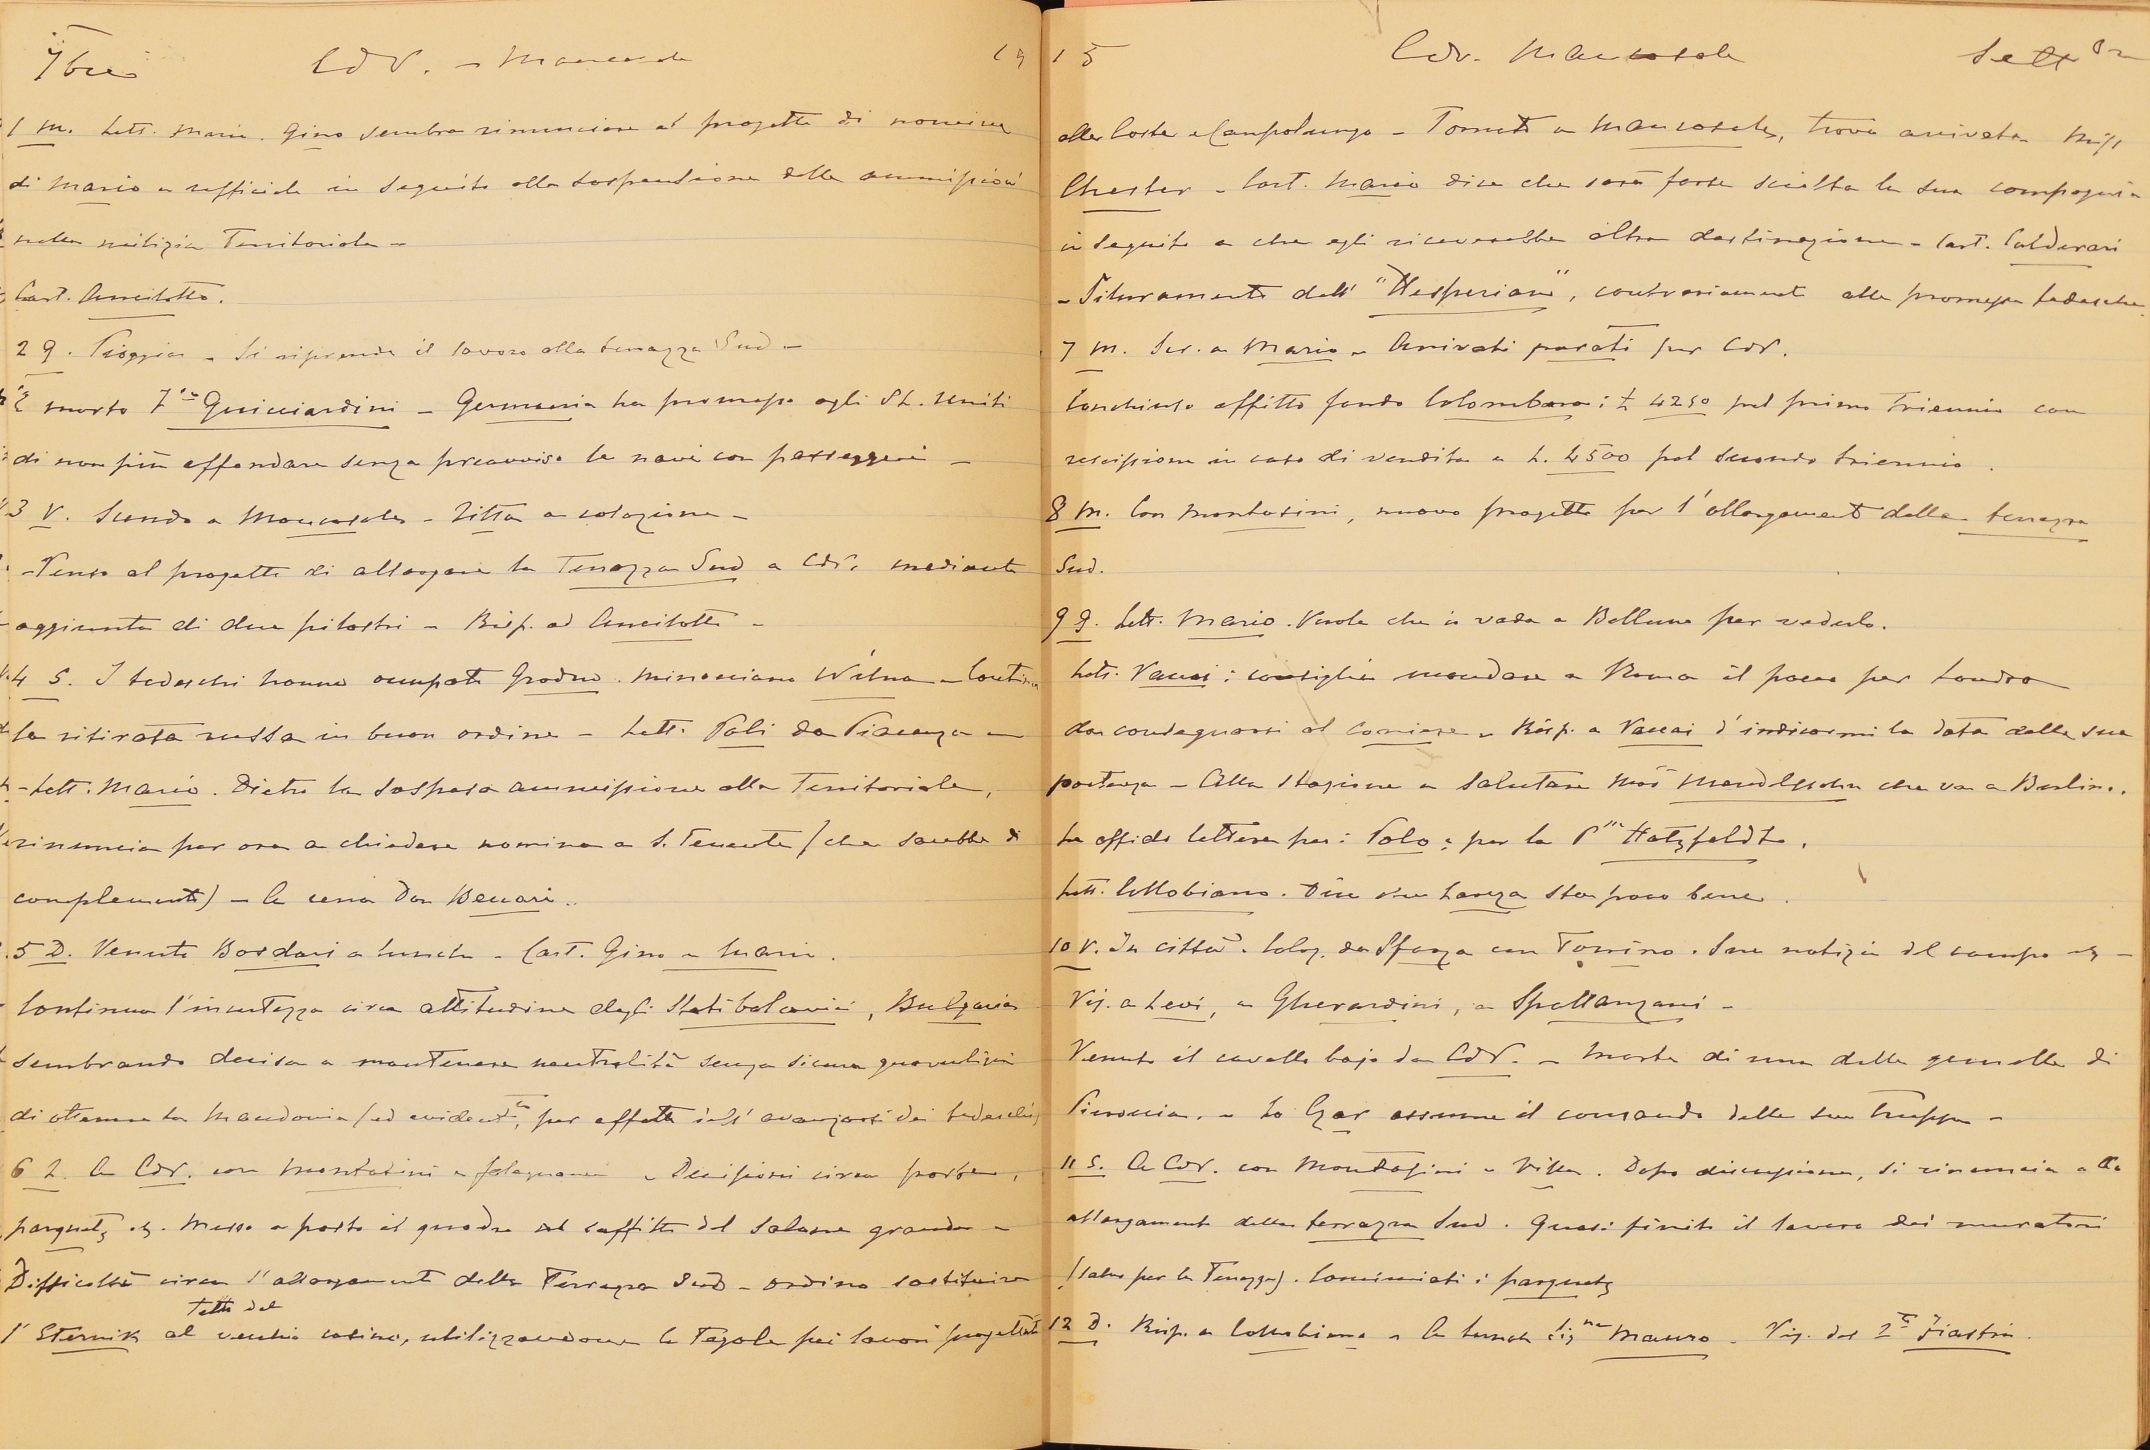 7bre CdV. - Mancasale 19
1 M. Lett. Maria. Gino sembra rinunciare al progetto di nomina
di Mario a ufficiale in seguito alla sospensione delle ammissioni
nella milizia Territoriale -
Cart. Ancilotto.
2 G. Pioggia - Si riprende il lavoro alla terrazza Sud -
È morto Guicciardini - Germania ha promesso agli St. Uniti
di non più affondare senza preavviso le navi con passeggeri -
3 V. Scendo a Mancasale - Zitta a colazione -
- Penso al progetto di allargare la Terrazza Sud a CdV. mediante
aggiunta di due pilastri - Risp. ad Ancilotto -
4 S. I tedeschi hanno occupato Grodno. Minacciano Wilna - Continua
la ritirata russa in buon ordine - Lett. Poli da Piacenza -
- Lett. Mario. Dietro la sospesa ammissione alla Territoriale,
rinuncia per ora a chiedere nomina a S. Tenente (che sarebbe di
complemento) - A cena Don Beccari.
5 D. Venuto Bordari a lunch - Cart. Gino - Maria.
Continua l'incertezza circa attitudine degli Stati balcanici, Bulgaria
sembrando decisa a mantenere neutralità senza sicura guarentigia
di ottenere la Macedonia (ed evident.te, per effetto dell'avanzarsi dei tedeschi)
6 L. A CdV. con Montasini e - Decisioni circa porte,
parquets, ec. Messo a posto il quadro del soffitto del Salone grande -
Difficoltà circa l'allargamento della Terrazza Sud - Ordino sostituire
l'Eternik al tetto del vecchio casino, utilizzandone le Tegole pei lavori progettati
15 CdV. Mancasale Sett.bre
alle Coste e Campolungo - Tornato a Mancasale, trovo arrivata Miss
Chester - Cart. Mario dice che sarà forse sciolta la sua compagnia
in seguito a che egli riceverebbe altra destinazione - Cart. Calderari
- Siluramento dell' "Hesperian", contrariamente alle promesse tedesche.
7 M. Scr. a Mario - Arrivati parati per CdV.
Conchiuso affitto fondo Colombara: £ 4250 pel primo Triennio con
rescissione in caso di vendita e L. 4500 pel secondo triennio.
8 M. Con Montasini, nuovo progetto per l'allargamento della terrazza
Sud.
9 G. Lett. Mario. Vuole che io vada a Belluno per vederlo.
Lett. Vaccai: consiglia mandare a Roma il pacco per Londra
da consegnarsi al corriere - Risp. a Vaccai d'indicarmi la data della sua
partenza - Alla stazione a salutare Miss Mendelssohn che va a Berlino.
Le affido lettere per: Polo; per la P.ssa Hatzfeldt.
Lett. Collobiano. Dice che Lanza sta poco bene.
10 V. In città. Colaz. da Sforza con Tonino. Sue notizie del campo ec -
Vis. a Levi, a Gherardini, a Spallanzani -
Venuto il cavallo bajo da CdV. - Morte di una delle gemelle di
- Lo Czar assume il comando delle sue truppe -
11 S. A CdV. con Montasini e Villa. Dopo discussione, si rinuncia alla
allargamento della terrazza Sud. Quasi finito il lavoro dei muratori
(salvo per la Terrazza). Cominciati i parquets
12 D. Risp. a Collobiano - A lunch Sig.na Mauro - Vis. del